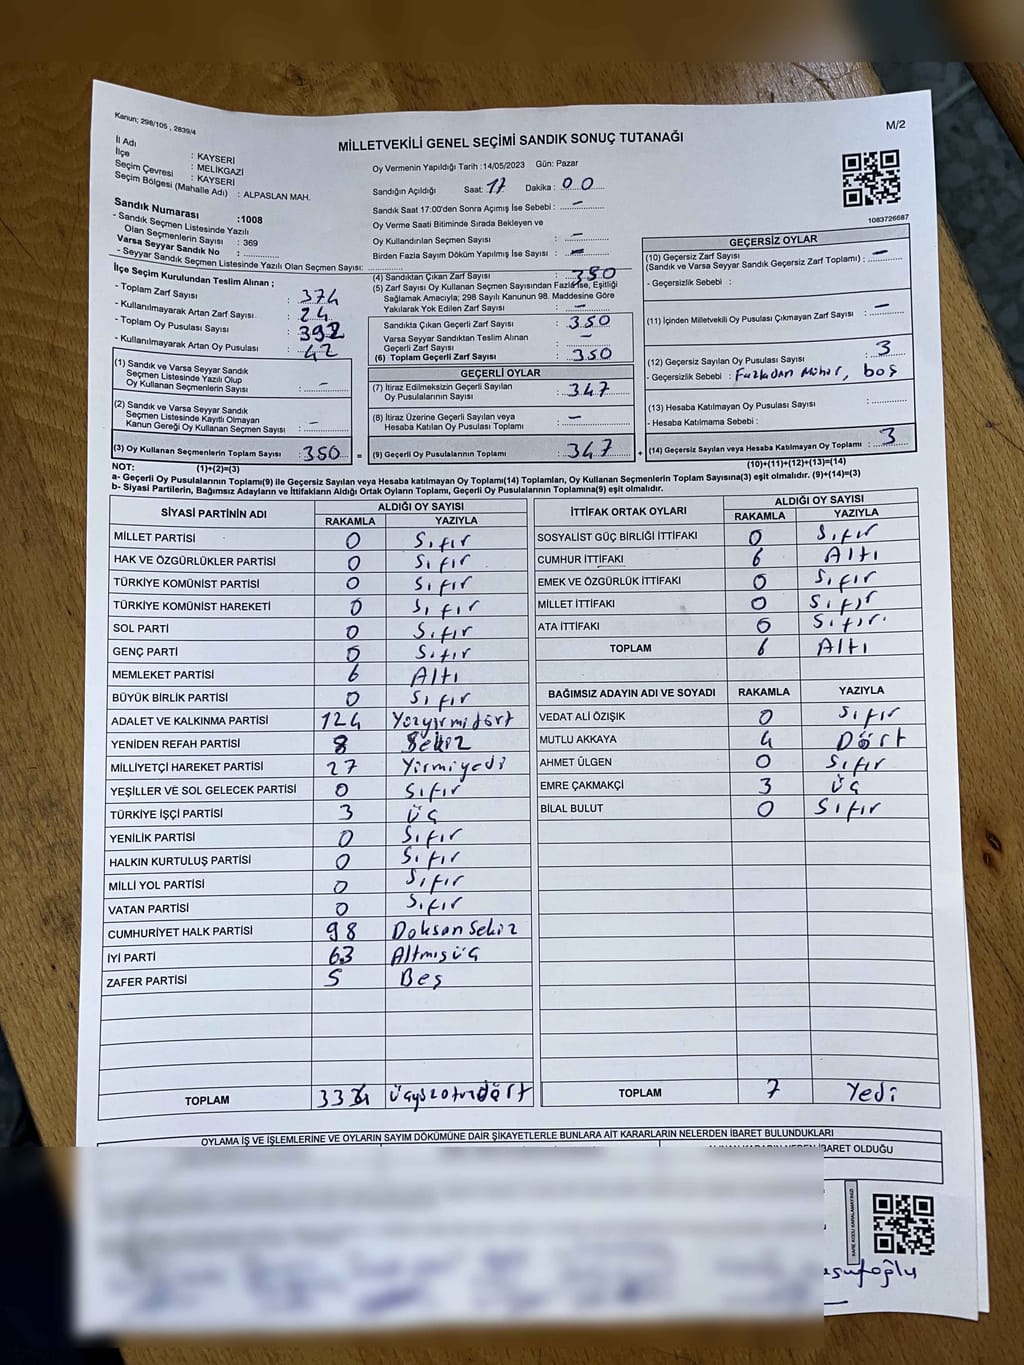 Kanun; 298/105 , 2839/4
M/2
MİLLETVEKİLİ GENEL SEÇİMİ SANDIK SONUÇ TUTANAĞI
İl Adı : KAYSERİ
İlçe : MELİKGAZİ
Seçim Çevresi : KAYSERİ
Seçim Bölgesi (Mahalle Adı) : ALPASLAN MAH.
Sandık Numarası :1008
- Sandık Seçmen Listesinde Yazılı
Olan Seçmenlerin Sayısı : 369
Varsa Seyyar Sandık No :
- Seyyar Sandık Seçmen Listesinde Yazılı Olan Seçmen Sayısı:
Oy Vermenin Yapıldığı Tarih :14/05/2023 Gün: Pazar
Sandığın Açıldığı Saat: 17 Dakika : 00
Sandık Saat 17:00'den Sonra Açımış İse Sebebi : -
Oy Verme Saati Bitiminde Sırada Bekleyen ve
Oy Kullandırılan Seçmen Sayısı : -
Birden Fazla Sayım Döküm Yapılmış İse Sayısı : -
1083726687
İlçe Seçim Kurulundan Teslim Alınan ;
- Toplam Zarf Sayısı : 374
- Kullanılmayarak Artan Zarf Sayısı : 24
- Toplam Oy Pusulası Sayısı : 392
- Kullanılmayarak Artan Oy Pusulası : 42
(1) Sandık ve Varsa Seyyar Sandık
Seçmen Listesinde Yazılı Olup
Oy Kullanan Seçmenlerin Sayısı : -
(2) Sandık ve Varsa Seyyar Sandık
Seçmen Listesinde Kayıtlı Olmayan
Kanun Gereği Oy Kullanan Seçmen Sayısı : -
(3) Oy Kullanan Seçmenlerin Toplam Sayısı : 350 =
(4) Sandıktan Çıkan Zarf Sayısı : 350
(5) Zarf Sayısı Oy Kullanan Seçmen Sayısından Fazla İse, Eşitliği
Sağlamak Amacıyla; 298 Sayılı Kanunun 98. Maddesine Göre
Yakılarak Yok Edilen Zarf Sayısı : -
Sandıkta Çıkan Geçerli Zarf Sayısı : 350
Varsa Seyyar Sandıktan Teslim Alınan
Geçerli Zarf Sayısı : -
(6) Toplam Geçerli Zarf Sayısı : 350
GEÇERLİ OYLAR
(7) İtiraz Edilmeksizin Geçerli Sayılan
Oy Pusulalarının Sayısı : 347
(8) İtiraz Üzerine Geçerli Sayılan veya
Hesaba Katılan Oy Pusulası Toplamı : -
(9) Geçerli Oy Pusulalarının Toplamı : 347 +
GEÇERSİZ OYLAR
(10) Geçersiz Zarf Sayısı
(Sandık ve Varsa Seyyar Sandık Geçersiz Zarf Toplamı) : -
- Geçersizlik Sebebi :
(11) İçinden Milletvekili Oy Pusulası Çıkmayan Zarf Sayısı : -
(12) Geçersiz Sayılan Oy Pusulası Sayısı : 3
- Geçersizlik Sebebi : Fazladan Mühür, boş
(13) Hesaba Katılmayan Oy Pusulası Sayısı :
- Hesaba Katılmama Sebebi :
(14) Geçersiz Sayılan veya Hesaba Katılmayan Oy Toplamı : 3
NOT: (1)+(2)=(3) (10)+(11)+(12)+(13)=(14)
a- Geçerli Oy Pusulalarının Toplamı(9) ile Geçersiz Sayılan veya Hesaba Katılmayan Oy Toplamı(14) Toplamları, Oy Kullanan Seçmenlerin Toplam Sayısına(3) eşit olmalıdır. (9)+(14)=(3)
b- Siyasi Partilerin, Bağımsız Adayların ve İttifakların Aldığı Ortak Oyların Toplamı, Geçerli Oy Pusulalarının Toplamına(9) eşit olmalıdır.
SİYASİ PARTİNİN ADI ALDIĞI OY SAYISI
RAKAMLA YAZIYLA
MİLLET PARTİSİ 0 Sıfır
HAK VE ÖZGÜRLÜKLER PARTİSİ 0 Sıfır
TÜRKİYE KOMÜNİST PARTİSİ 0 Sıfır
TÜRKİYE KOMÜNİST HAREKETİ 0 Sıfır
SOL PARTİ 0 Sıfır
GENÇ PARTİ 0 Sıfır
MEMLEKET PARTİSİ 6 Altı
BÜYÜK BİRLİK PARTİSİ 0 Sıfır
ADALET VE KALKINMA PARTİSİ 124 Yüzyirmidört
YENİDEN REFAH PARTİSİ 8 Sekiz
MİLLİYETÇİ HAREKET PARTİSİ 27 Yirmiyedi
YEŞİLLER VE SOL GELECEK PARTİSİ 0 Sıfır
TÜRKİYE İŞÇİ PARTİSİ 3 Üç
YENİLİK PARTİSİ 0 Sıfır
HALKIN KURTULUŞ PARTİSİ 0 Sıfır
MİLLİ YOL PARTİSİ 0 Sıfır
VATAN PARTİSİ 0 Sıfır
CUMHURİYET HALK PARTİSİ 98 Doksan Sekiz
İYİ PARTİ 63 Altmışüç
ZAFER PARTİSİ 5 Beş
TOPLAM 334 Üçyüzotuzdört
İTTİFAK ORTAK OYLARI ALDIĞI OY SAYISI
RAKAMLA YAZIYLA
SOSYALİST GÜÇ BİRLİĞİ İTTİFAKI 0 Sıfır
CUMHUR İTTİFAKI 6 Altı
EMEK VE ÖZGÜRLÜK İTTİFAKI 0 Sıfır
MİLLET İTTİFAKI 0 Sıfır
ATA İTTİFAKI 0 Sıfır
TOPLAM 6 Altı
BAĞIMSIZ ADAYIN ADI VE SOYADI RAKAMLA YAZIYLA
VEDAT ALİ ÖZIŞIK 0 Sıfır
MUTLU AKKAYA 4 Dört
AHMET ÜLGEN 0 Sıfır
EMRE ÇAKMAKÇİ 3 Üç
BİLAL BULUT 0 Sıfır
TOPLAM 7 Yedi
OYLAMA İŞ VE İŞLEMLERİNE VE OYLARIN SAYIM DÖKÜMÜNE DAİR ŞİKAYETLERLE BUNLARA AİT KARARLARIN NELERDEN İBARET BULUNDUKLARI
İBARET OLDUĞU
KARE KODU KARALAMAYINIZ!